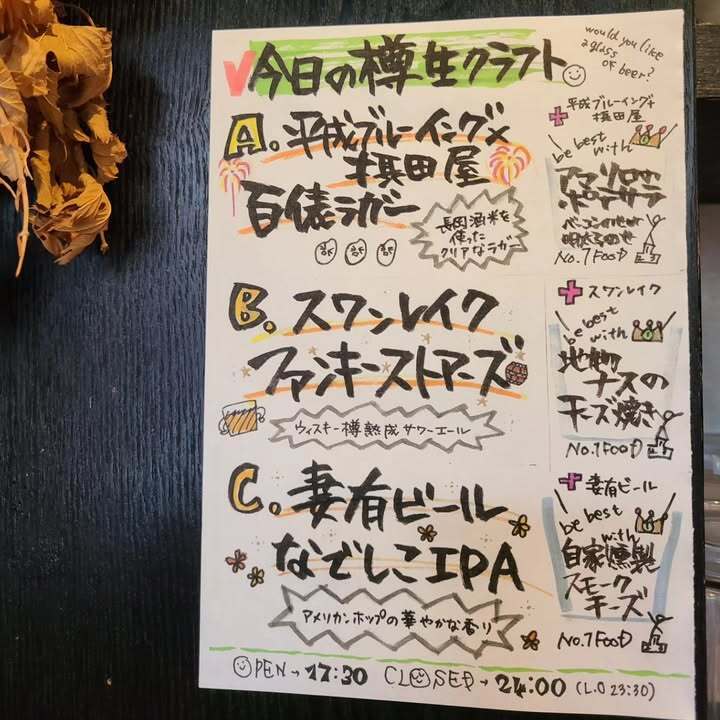 今日の樽生クラフト
would you like
a glass
of beer?
A. 平成ブルーイング×
棋田屋
百俵ラガー
長岡酒米を
使った
クリアなラガー
+ 平成ブルーイング+
棋田屋
be best with
アマリロの
ポテサラ
No.1 FOOD
B. スワンレイク
ファンキーストアーズ
ウィスキー樽熟成サワーエール
+ スワンレイク
be best
with
地物
ナスの
チーズ焼き
No.1 FOOD
C. 妻有ビール
なでしこIPA
アメリカンホップの華やかな香り
+ 妻有ビール
be best
with
自家燻製
スモーク
チーズ
No.1 FOOD
OPEN→17:30 CLOSED→24:00 (L.O 23:30)